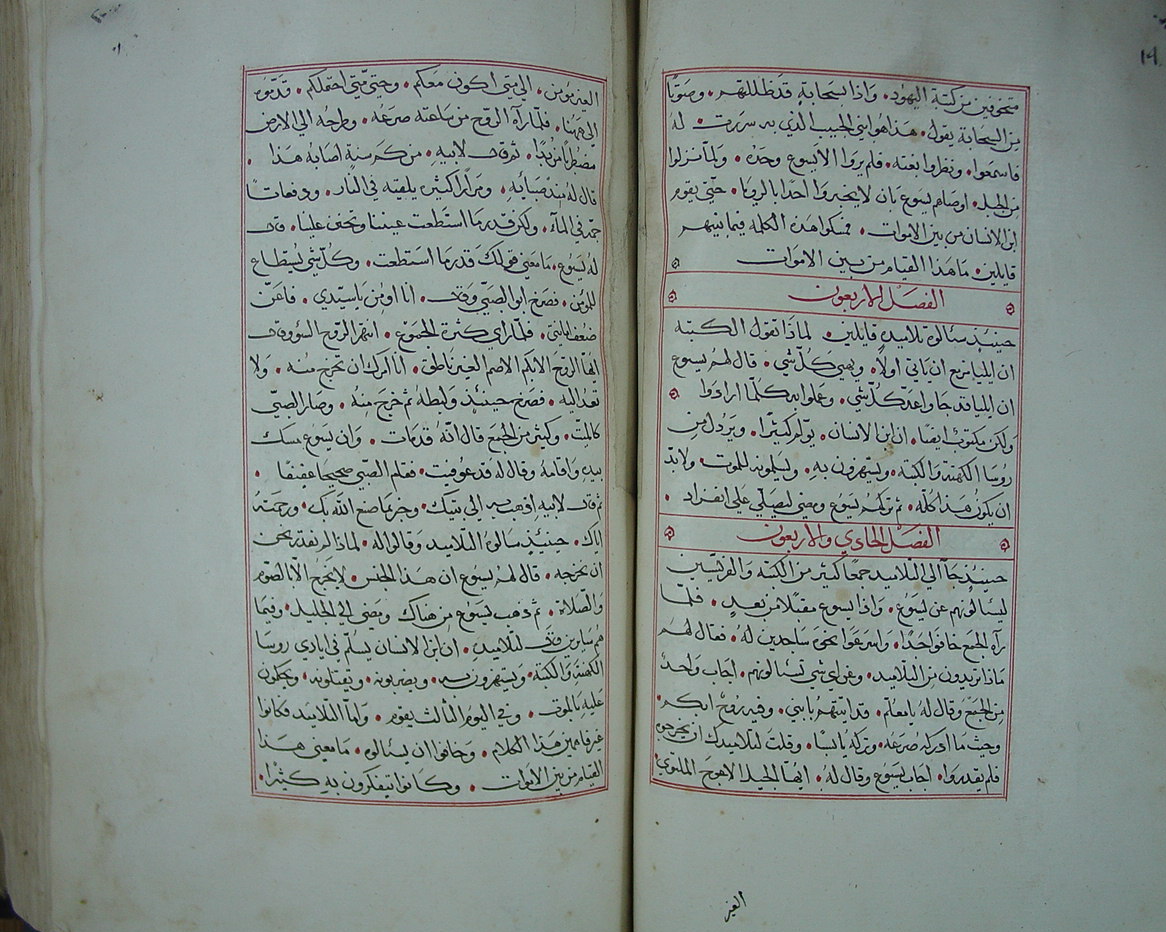 متخوفين من كتبة اليهود. واذا سحابةٍ قد ظللتهم. وصوتًا
من السحابة يقول. هذا هو ابني الحبيب الذي به سررت. لهُ
فاسمعوا. ونظروا بغتة. فلم يروا الا يسوع وحدهُ. ولما نزلوا
من الجبل. اوصاهم يسوع بان لا يخبروا احدًا بالرويا. حتى يقوم
ابن الانسان من بين الاموات. فمسكوا هذه الكلمه فيما بينهم
قايلين. ما هذا القيام من بين الاموات
الفصل الاربعون
حينيذٍ سالوه تلاميذه قايلين. لماذا تقول الكتبه
ان ايليا مزمع ان ياتي اولًا. ويهيي كل شي. قال لهم يسوع
ان ايليا قد جا واعد كل شي. وعملوا به كلما ارادوا
ولكن مكتوبٌ ايضًا. ان ابن الانسان. يولم كثيرًا. ويرذل من
روسا الكهنة والكتبة. ويستهزون به. ويسلمونه للموت. ولابد
ان يكون هذا كله. ثم تركهم يسوع ومضى ليصلي على انفراد
الفصل الحادي والاربعون
حينيذٍ جا الى التلاميذ جمعًا كثير من الكتبه والفريسيين
ليسالونهم عن يسوع. واذا يسوع مقبلًا من بعدٍ. فلما
رآه الجمع خافوا جدًا. واسرعوا نحوه ساجدين لهُ. فقال لهم
ماذا تريدون من التلاميذ. وعن اي شي تسالونهم. اجاب واحدٌ
من الجمع وقال لهُ يا معلم. قد اتيتهم بابني. وفيه روحٌ ابكم.
وحيث ما ادركه صرعهُ. وتركهُ يابسًا. وقلت لتلاميذك ان يخرجوه
فلم يقدروا. اجاب يسوع وقال لهُ. ايها الجيل الاهوج الملتوي
الغير
الغير مومن. الى متى اكون معكم. وحتى متى احتملكم. قدموه
الى ههنا. فلما رآه الروح من ساعته صرعهُ. وطرحهُ الى الارض
مضطربًا مزبدًا. ثم قال لابيه. من كم سنةٍ اصابه هذا.
قال له منذ صبائهِ. ومرارًا كثيرة يلقيه في النار. ودفعاتًا
جمة في المآء. ولكن قدر ما استطعت عيننا وتحنن علينا. قال
لهُ يسوع. ما معنى قولك قدر ما استطعت. وكل شي يُستطاع
للمومن. فصرخ ابو الصبي وقال. انا اومن يا سيدي. فاعن
ضعف ايماني. فلما راى كثرة الجموع. انتهر الروح السوو وقال
ايها الروح الابكم الاصم الغير ناطق. انا آمرك ان تخرج منه. ولا
تعد اليه. فصرخ حينيذٍ ولبطهُ ثم خرج منهُ. وصار الصبي
كالميت. وكثيرٌ من الجمع قال انهُ قد مات. وان يسوع مسك
بيده واقامهُ وقال له قد عوفيت. فقام الصبي صحيحًا
ثم قال لابيهِ اذهب به الى بيتك. وخبر بما صنع الله بك. ورحمتهُ
اياك. حينيذٍ سالوهُ التلاميذ وقالوا له. لماذا لم نقتدر نحن
ان نخرجه. قال لهم يسوع ان هذا الجنس. لا يخرج الا بالصوم
والصلاة. ثم ذهب يسوع من هناك ومضى الى الجليل. وفيما
هم سايرين قال لتلاميذه. ان ابن الانسان يُسلّم في ايادي روسا
الكهنة والكتبة. ويستهزون به. ويضربونه. ويقتلونه. ويحكمون
عليهِ بالموت. وفي اليوم الثالث يقوم. ولما التلاميذ فكانوا
غير فاهمين هذا الكلام. وخافوا ان يسالوه. ما معنى هذا
القيام من بين الاموات. وكانوا يتفكرون بهِ كثيرًا.